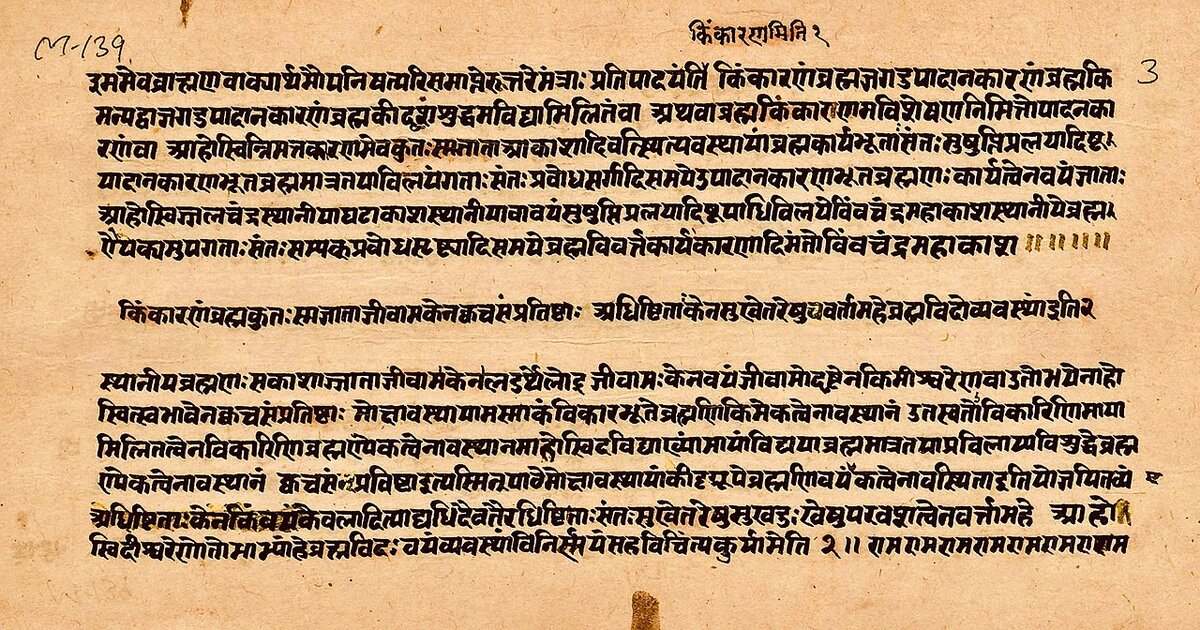 M-139
किंकारणमिति२
3
इममेवब्राह्मणवाक्यार्थमौपनिषत्परिसमाप्तेरुत्तरेमंत्राः प्रतिपादयंति किंकारणंब्रह्मजगदुपादानकारणंब्रह्मकि
मन्यद्वाजगदुपादानकारणंब्रह्मकीदृशंशुद्धमविद्यामिलितंवा अथवाब्रह्मकिंकारणमविशेषणनिमित्तोपादनका
रणंवा आहोस्विन्निमत्तकारणमेवकुतःस्मजाताआकाशादिवत्स्थित्यवस्थायांब्रह्मकार्यभूताःसंतःसुषुप्तिप्रलयादिषू
पादानकारणभूतब्रह्ममात्रतयाविलयंगताःसंतःप्रबोधसर्गादिसमयेउपादानकारणभूतब्रह्मणःकार्यत्वेनवयंजाताः
आहोस्विज्जलचंद्रस्थानीयाघटाकाशस्थानीयावावयंसुषुप्तिप्रलयादिषूपाधिविलयेबिंबचंद्रमहाकाशस्थानीयेब्रह्म
णैक्यमुपगताःसंतःसम्यक्प्रबोधसृष्ट्यादिसमयेब्रह्मविवर्त्तकार्यकारणादिमंतोबिंबचंद्रमहाकाश ॥॥॥॥
किंकारणंब्रह्मकुतःस्मजाताजीवामकेनक्वचसंप्रतिष्ठाः अधिष्ठिताःकेनसुखेतरेषुवर्तामहेब्रह्मविदोव्यवस्थांइति२
स्थानीयब्रह्मणःसकाशाज्जाताजीवामकेनलडर्थेलोट् जीवामःकेनवयंजीवामोदृष्टेनकिमीश्वरेणवाउतोभयेनाहो
स्वित्स्वभावेनक्वचसंप्रतिष्ठाः मोक्षावस्थायामस्माकंविकारभूतेब्रह्मणिकिमेकत्वेनावस्थानं उतस्वतोविकारिणिमाया
मिलितत्वेनविकारिणिब्रह्मण्येकत्वेनावस्थानमाहोस्विदविद्याख्यांमायांविद्ययाब्रह्ममात्रतयाप्रविलाप्यविशुद्धेब्रह्म
ण्येकत्वेनावस्थानं क्वचसंप्रविष्टाइत्यस्मिन्पाठेमोक्षावस्थायांकीदृग्रूपेब्रह्मणिवयंएकत्वेनावस्थिताइतियोजयितव्यं
अधिष्ठिताःकेनकिंवयंकेवलादित्याद्यधिदेवतैरधिष्ठिताःसंतःसुखेतरेषुसुखदुःखेषुपरवशत्वेनवर्त्तामहे आहो
स्विदीश्वरेणोतोभाभ्यांहेब्रह्मविदःवयंव्यवस्थांविनिर्णयंसहविचिंत्यकुर्यामेति २॥ रामरामरामरामरामरामरामराम